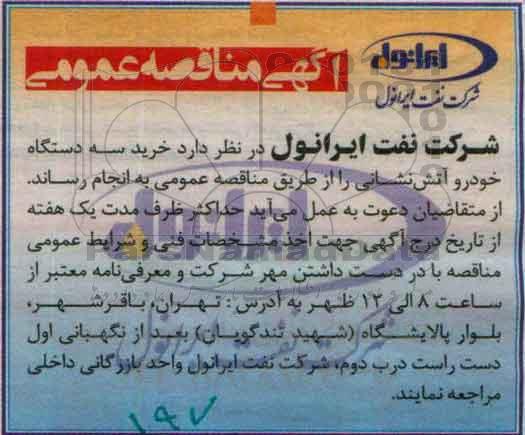 ایرانول
شرکت نفت ایرانول
آگهی مناقصه عمومی
شرکت نفت ایرانول در نظر دارد خرید سه دستگاه
خودرو آتش‌نشانی را از طریق مناقصه عمومی به انجام رساند.
از متقاضیان دعوت به عمل می‌آید حداکثر ظرف مدت یک هفته
از تاریخ درج آگهی جهت اخذ مشخصات فنی و شرایط عمومی
مناقصه با در دست داشتن مهر شرکت و معرفی‌نامه معتبر از
ساعت ۸ الی ۱۲ ظهر به آدرس: تهران، باقرشهر،
بلوار پالایشگاه (شهید تندگویان) بعد از نگهبانی اول
دست راست درب دوم، شرکت نفت ایرانول واحد بازرگانی داخلی
مراجعه نمایند.
۱۹۷